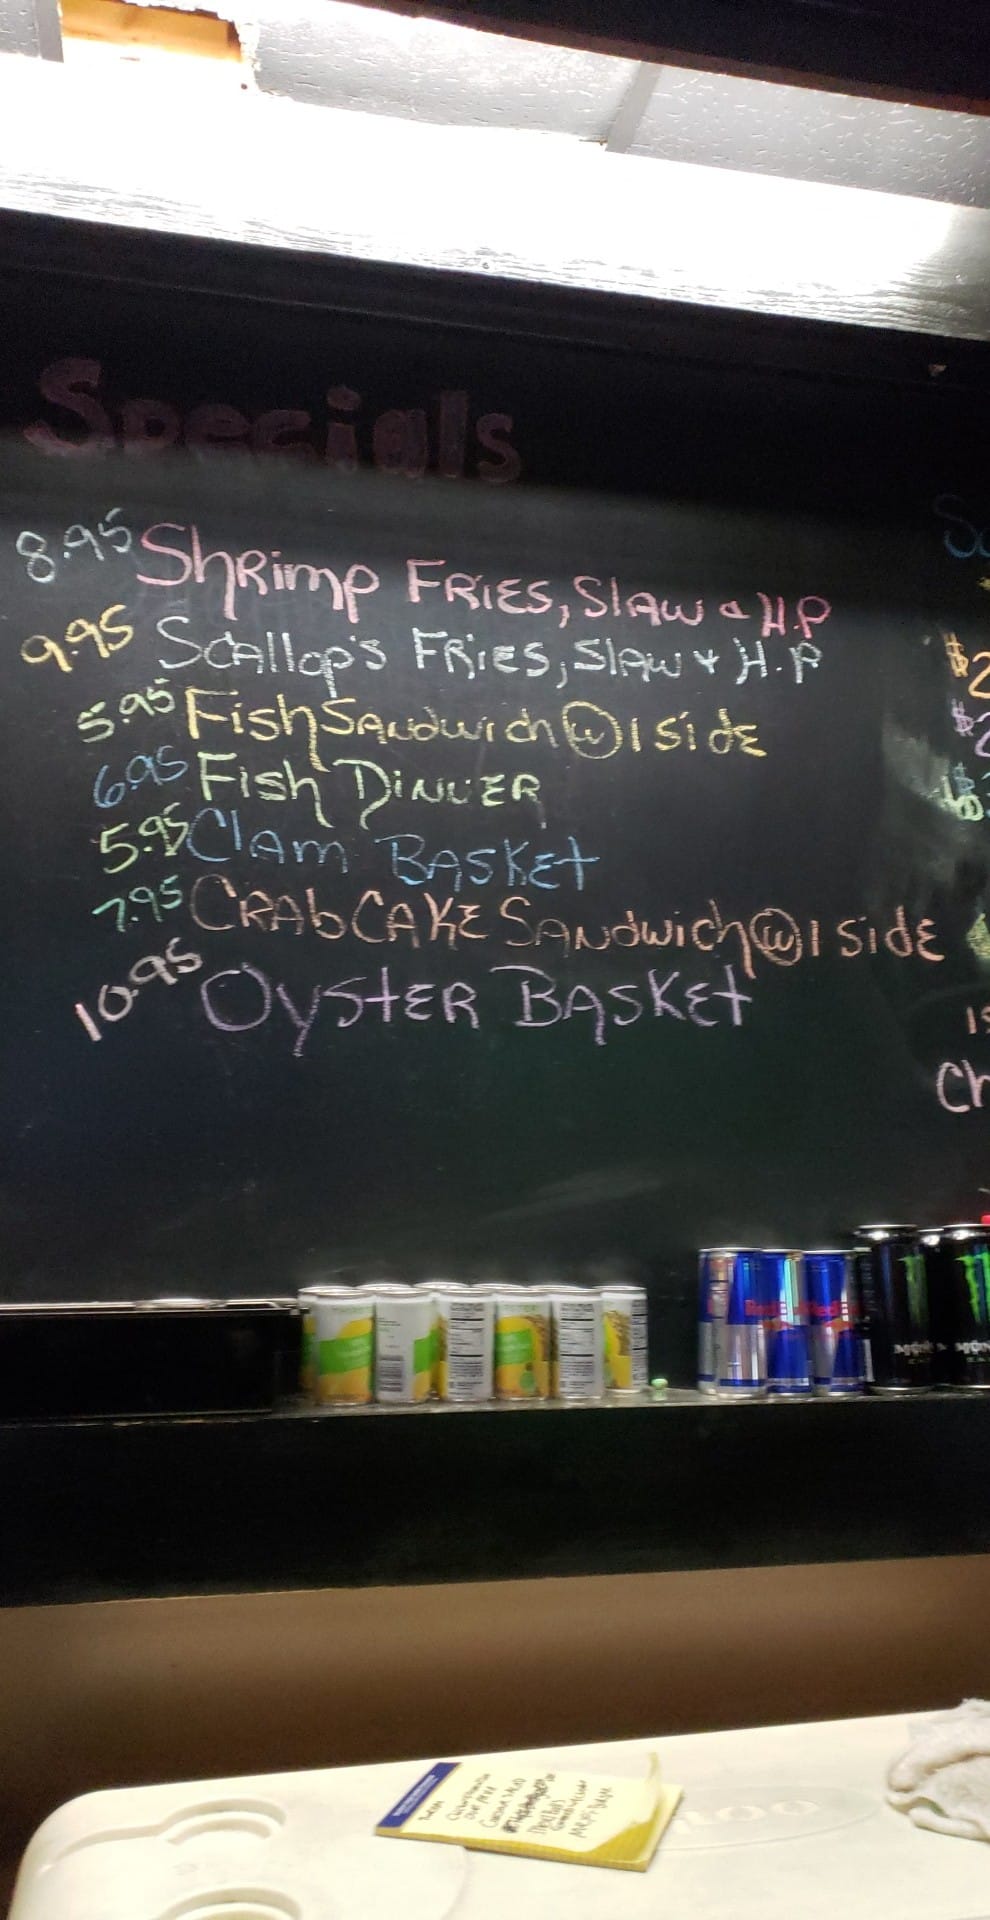 Specials
8.95 Shrimp Fries, Slaw & H.P
9.95 Scallop's Fries, Slaw & H.P
5.95 Fish Sandwich W 1 side
6.95 Fish Dinner
5.95 Clam Basket
7.95 Crab Cake Sandwich W 1 side
10.95 Oyster Basket
$2
$2
Ch
Red
Red